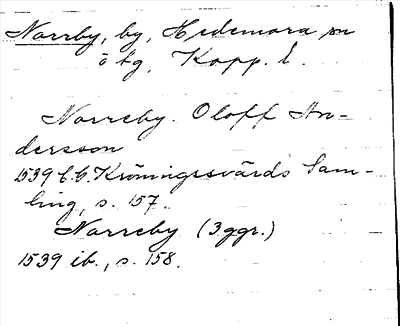 Norrby, by, Hedemora sn
o tg, Kopp. l.
Norreby. Oloff An-
dersson
1539 C.C. Kröningssvärds Sam-
ling, s. 157.
Norreby (3 ggr.)
1539 ib., s. 158.